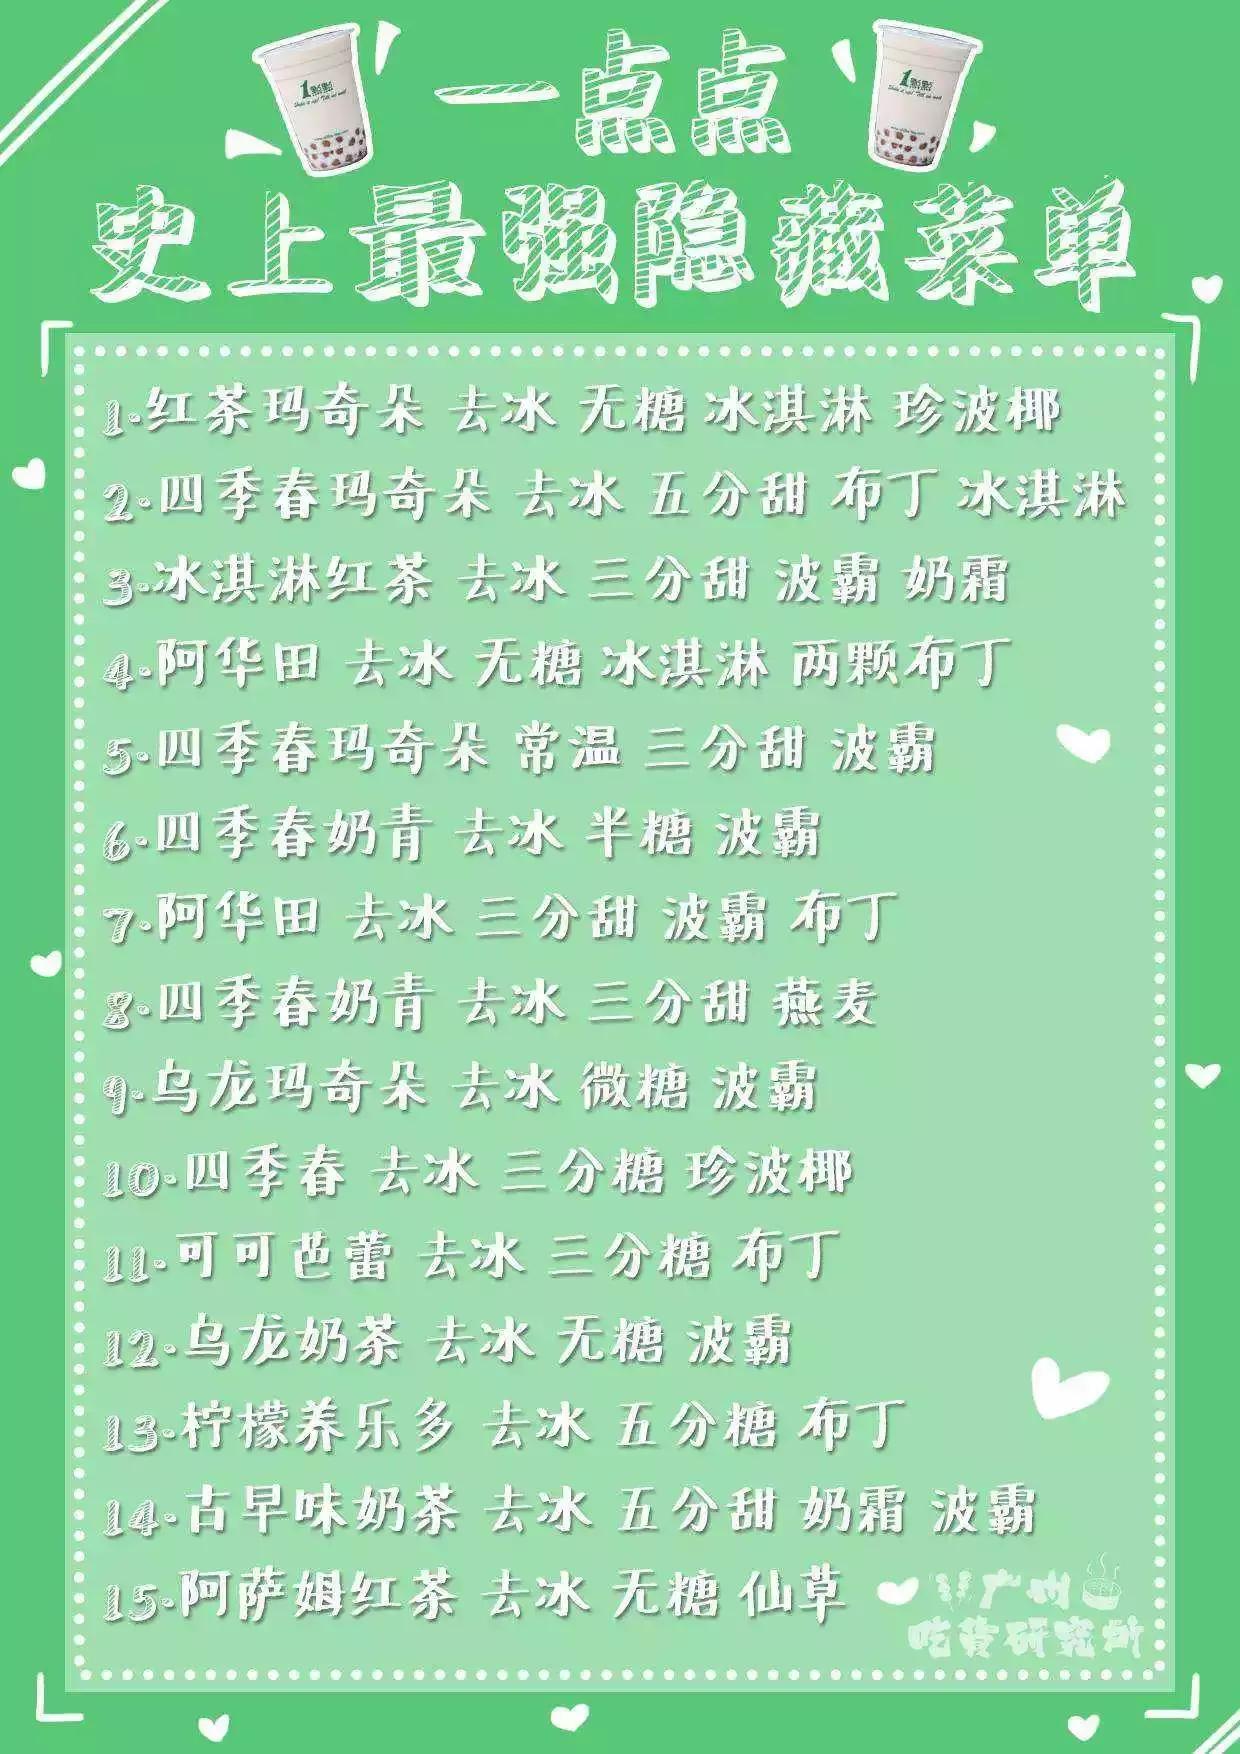 一点点
史上最强隐藏菜单
1.红茶玛奇朵 去冰 无糖 冰淇淋 珍波椰
2.四季春玛奇朵 去冰 五分甜 布丁 冰淇淋
3.冰淇淋红茶 去冰 三分甜 波霸 奶霜
4.阿华田 去冰 无糖 冰淇淋 两颗布丁
5.四季春玛奇朵 常温 三分甜 波霸
6.四季春奶青 去冰 半糖 波霸
7.阿华田 去冰 三分甜 波霸 布丁
8.四季春奶青 去冰 三分甜 燕麦
9.乌龙玛奇朵 去冰 微糖 波霸
10.四季春 去冰 三分糖 珍波椰
11.可可芭蕾 去冰 三分糖 布丁
12.乌龙奶茶 去冰 无糖 波霸
13.柠檬养乐多 去冰 五分糖 布丁
14.古早味奶茶 去冰 五分甜 奶霜 波霸
15.阿萨姆红茶 去冰 无糖 仙草
广州
吃货研究所
1點點
1點點